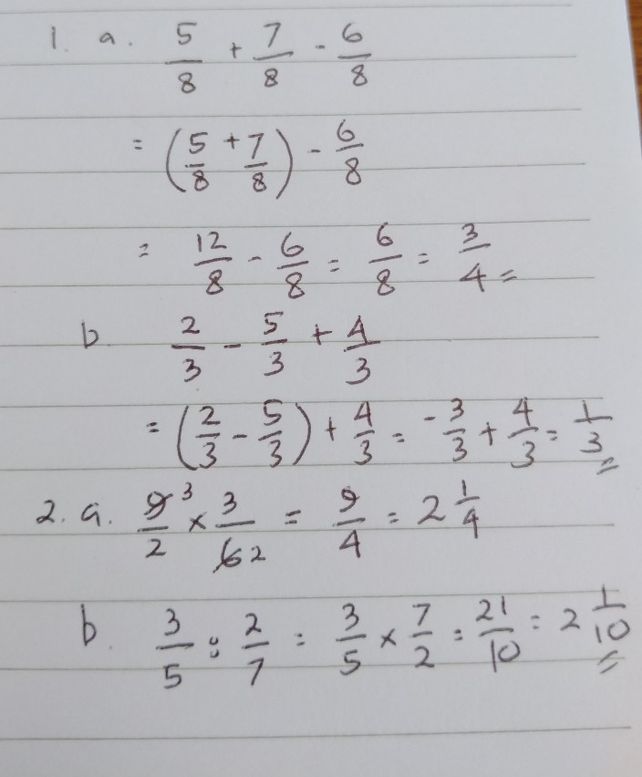 1. a. 5/8 + 7/8 - 6/8
= (5/8 + 7/8) - 6/8
= 12/8 - 6/8 = 6/8 = 3/4 =
b. 2/3 - 5/3 + 4/3
= (2/3 - 5/3) + 4/3 = -3/3 + 4/3 = 1/3 =
2. a. 9 3/2 × 3/6 2 = 9/4 = 2 1/4
b. 3/5 : 2/7 = 3/5 × 7/2 = 21/10 = 2 1/10 =